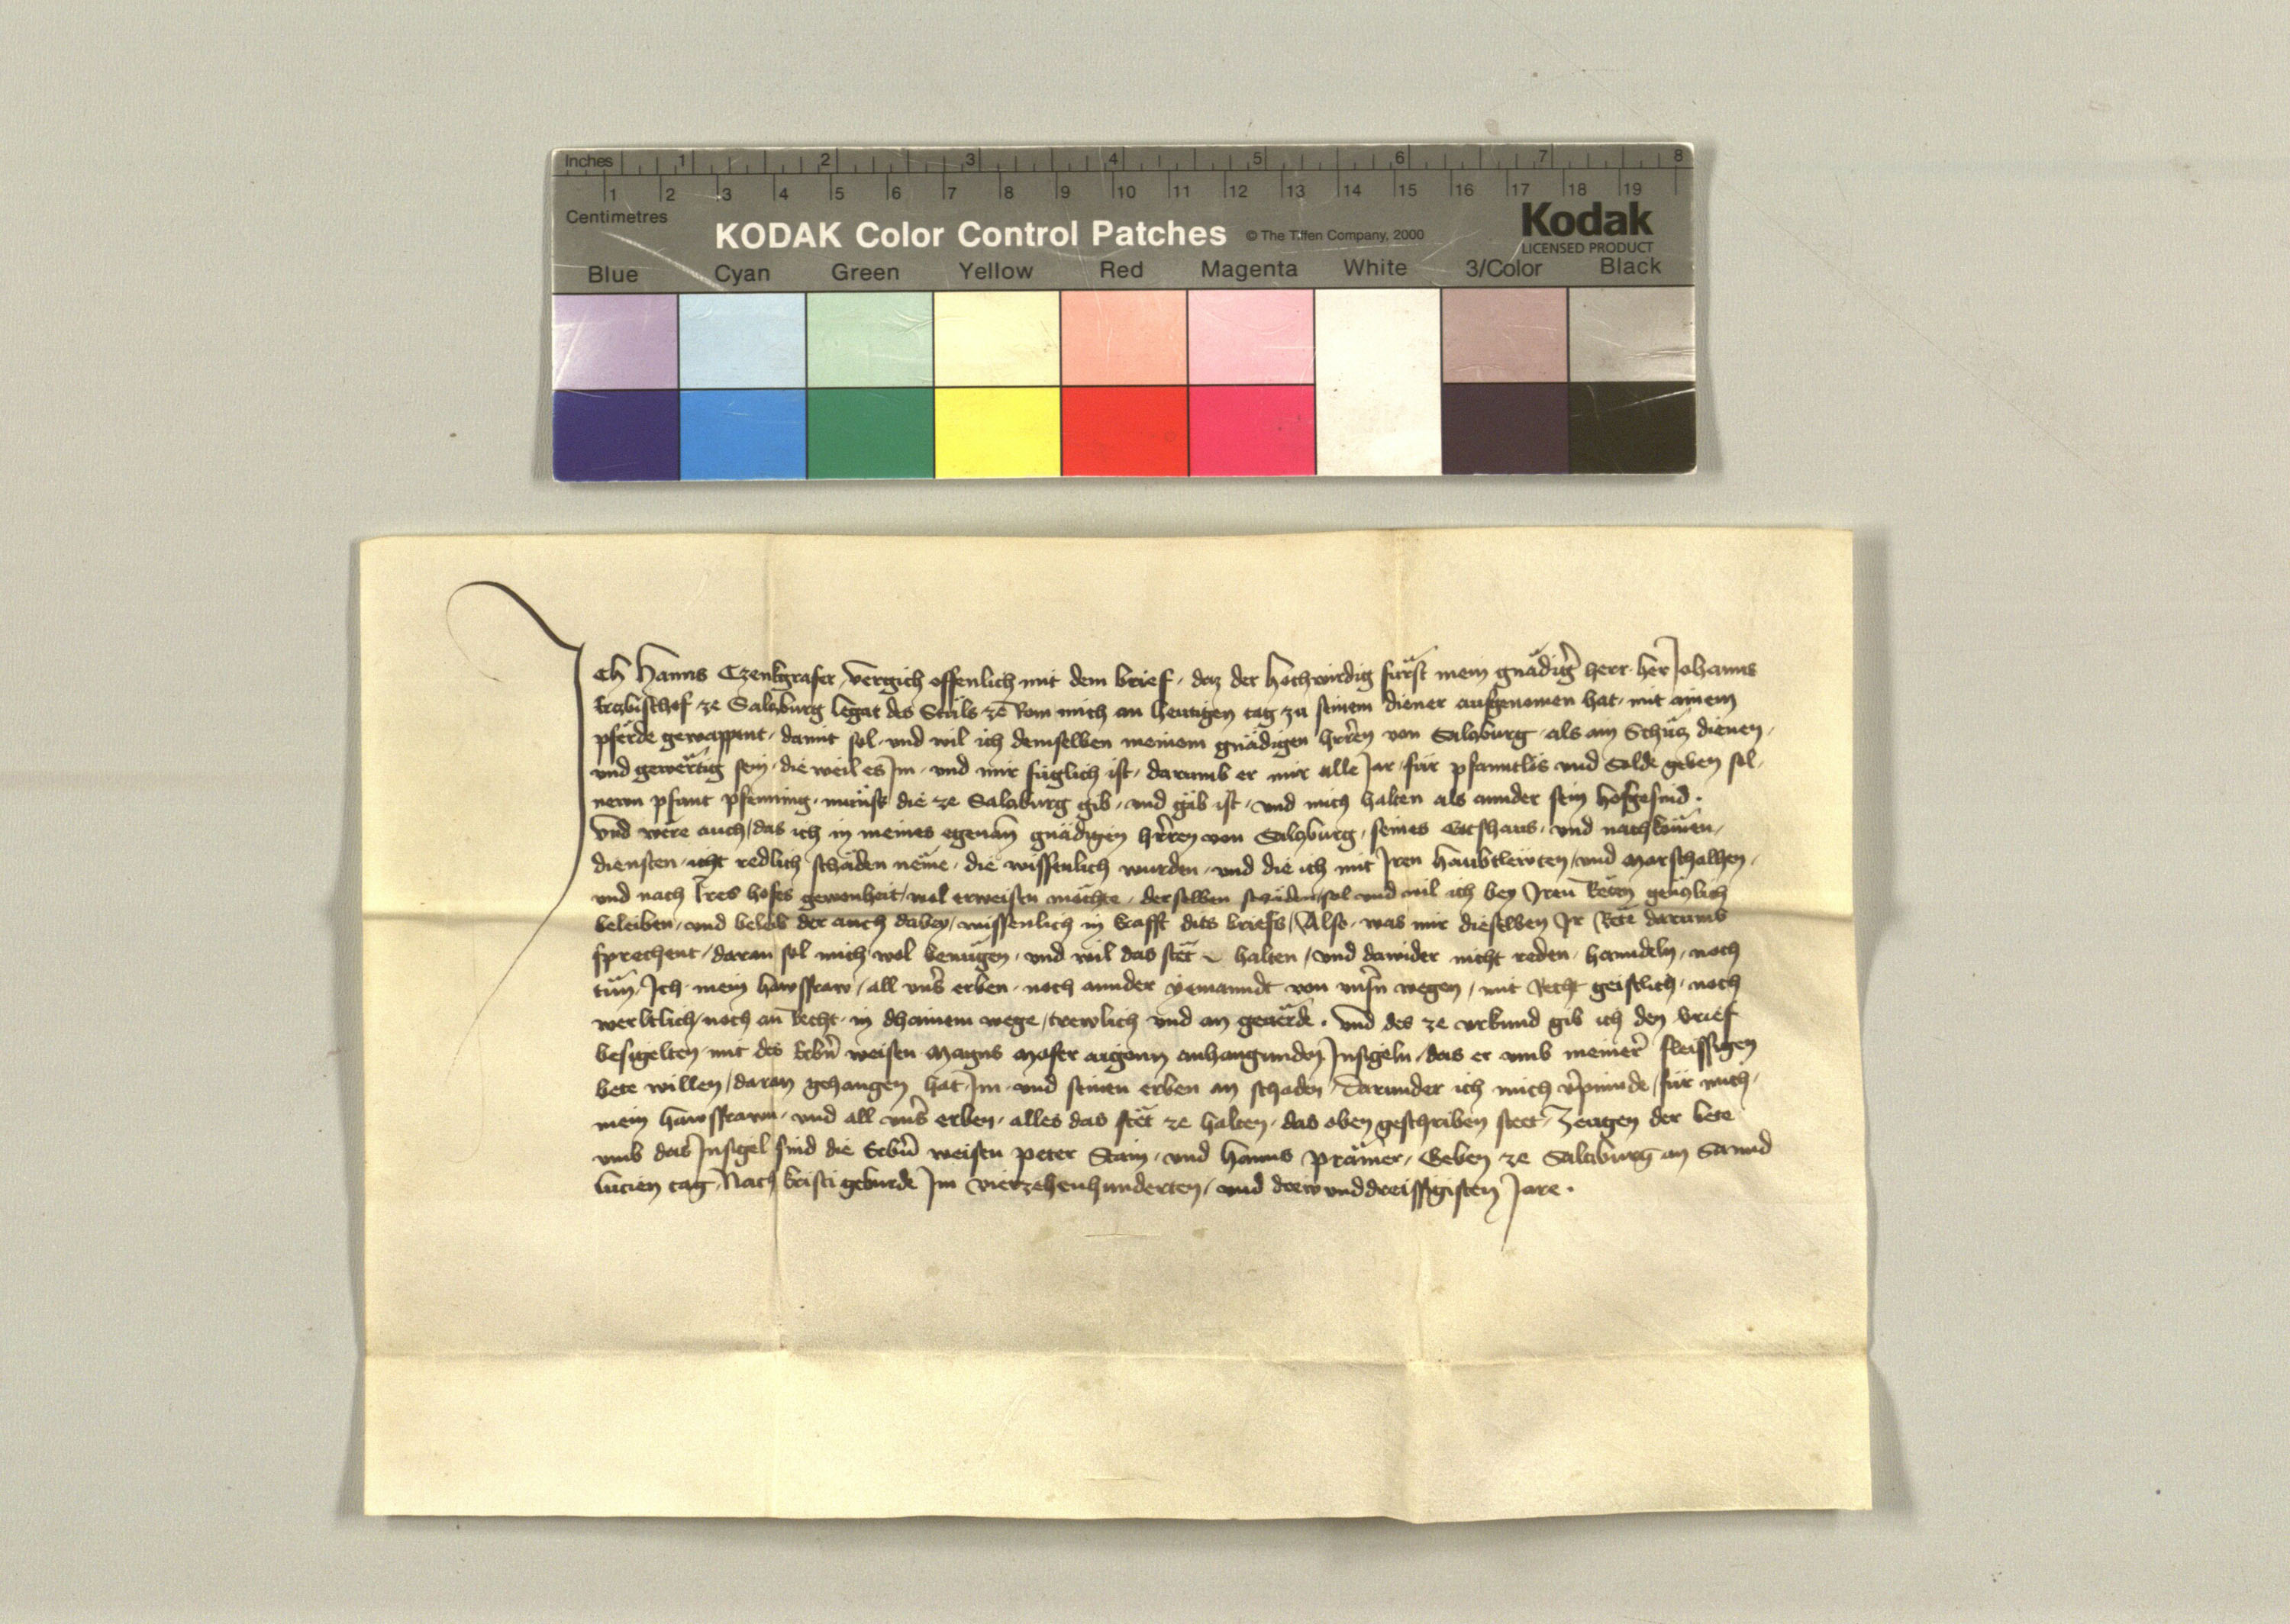 Inches 1 2 3 4 5 6 7 8
1 2 3 4 5 6 7 8 9 10 11 12 13 14 15 16 17 18 19
Centimetres
KODAK Color Control Patches © The Tiffen Company, 2000 Kodak
LICENSED PRODUCT
Blue Cyan Green Yellow Red Magenta White 3/Color Black
Ich Hanns Czenkgrafer, vergich offenlich mit dem brief, daz der hochwirdig fürst mein gnädiger herr her Johanns
Ertzbischof ze Saltzburg legat des Stuls ze Rom mich an heutigen tag zu seinem diener aufgenomen hat, mit ainem
pferde gewappent, damit sol und wil ich demselben meinem gnädigen hrren von Saltzburg als ain Schütz dienen,
und gewertig sein, die weil es Im und mir füglich ist, darumb er mir alle Jar für pfanntlös und Solde geben sol,
newn pfunt pfenning, münss die ze Saltzburg gib, und gäb ist, und mich halten als annder sein hofgesind.
Und were auch, das ich in meines egenan gnädigen hrren von Saltzburg, seines Gotshaus, und nachkömen,
diensten icht redlich schäden neme, die wissenlich wurden, und die ich mit Iren haubtlewten, und Marschalhen,
und nach Ires hofes gewonheit, wol erweisen möchte, derselben schäden, sol und wil ich bey Iren Reten gentzlich
beleiben, und beleib der auch dabey, wissenlich in krafft dits briefs, Also, was mir dieselben Ir Rete darumb
sprechent, daran sol mich wol benügen, und wil das stet halten, und dawider nicht reden, hanndeln, noch
tun, Ich mein hawsfraw, all uns erben, noch annder yemanndt von unsn wegen, mit Recht geistlich, noch
werltlich, noch an Recht, in dhainem wege, trewlich und an geuerde. Und des ze urkund gib ich den brief
besigelten mit des Erbn weisen Magns Moser aigenn anhangunden Insigeln, das er umb meiner fleissigen
bete willen, daran gehangen hat, Im und seinen erben an schaden, Darunder ich mich vpinnde, für mich,
mein hawsfrawn, und all uns erben, alles das stet ze halten, das oben geschriben steet, Zeugen der bete
umb das Insigel sind die Erbn weisen peter Stain, und Hanns prämer, Geben ze Saltzburg an Sannd
lucien tag, Nach kristi geburde Im vierzehenhunderten, und drewunddreissigisten Jare.